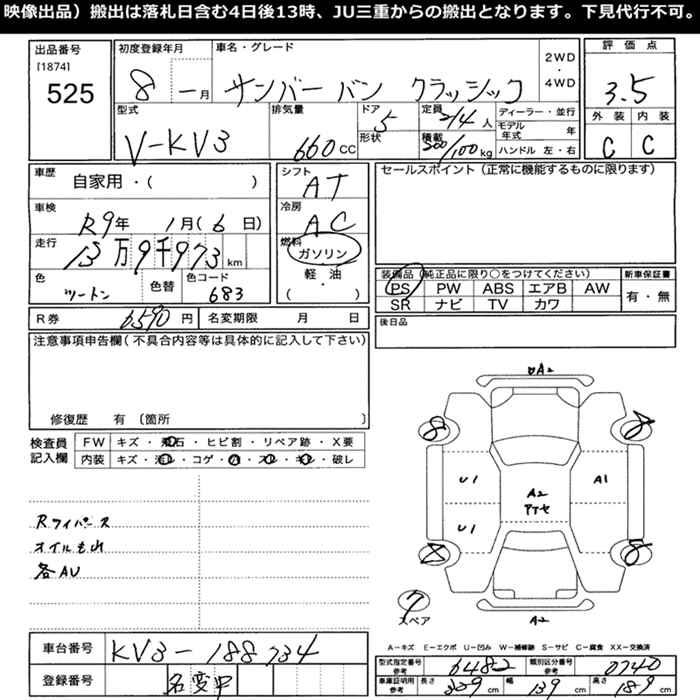 映像出品）搬出は落札日含む4日後13時、JU三重からの搬出となります。下見代行不可。
出品番号
[1874]
525
初度登録年月
8 ー月
車名・グレード
サンバーバン クラッシック
2WD
・
4WD
評価点
3.5
型式
V-KV3
排気量
660cc
ドア
5
形状
定員
2/4人
積載
500/100kg
ディーラー・並行
モデル年式 年
ハンドル 左・右
外装 内装
C C
車歴
自家用・( )
車検
R9年 1月(6日)
走行
13万9千973km
色
ツートン
色替
色コード
683
シフト
AT
冷房
AC
燃料
ガソリン
・
軽・油
( )
セールスポイント（正常に機能するものに限ります）
装備品（純正品に限り○をつけてください）
PS PW ABS エアB AW
SR ナビ TV カワ
新車保証書
有・無
R券 6590円 名変期限 月 日
後日品
注意事項申告欄(不具合内容等は具体的に記入して下さい)
修復歴 有 〔箇所 〕
検査員記入欄
FW キズ・飛石・ヒビ割・リペア跡・X要
内装 キズ・汚レ・コゲ・穴・スレ・キレ・破レ
Rワイパースレ
オイルもれ
各AU
A2
8
7
U1
A1
A2
アトセ
U1
8
8
7
スペア
A2
A-キズ E-エクボ U-凹み W-補修跡 S-サビ C-腐食 XX-交換済
車台番号 KV3-188734
登録番号 名変中
型式指定番号参考 6482 類別区分番号参考 0740
車庫証明用参考 長さ 329cm 幅 139cm 高さ 189cm